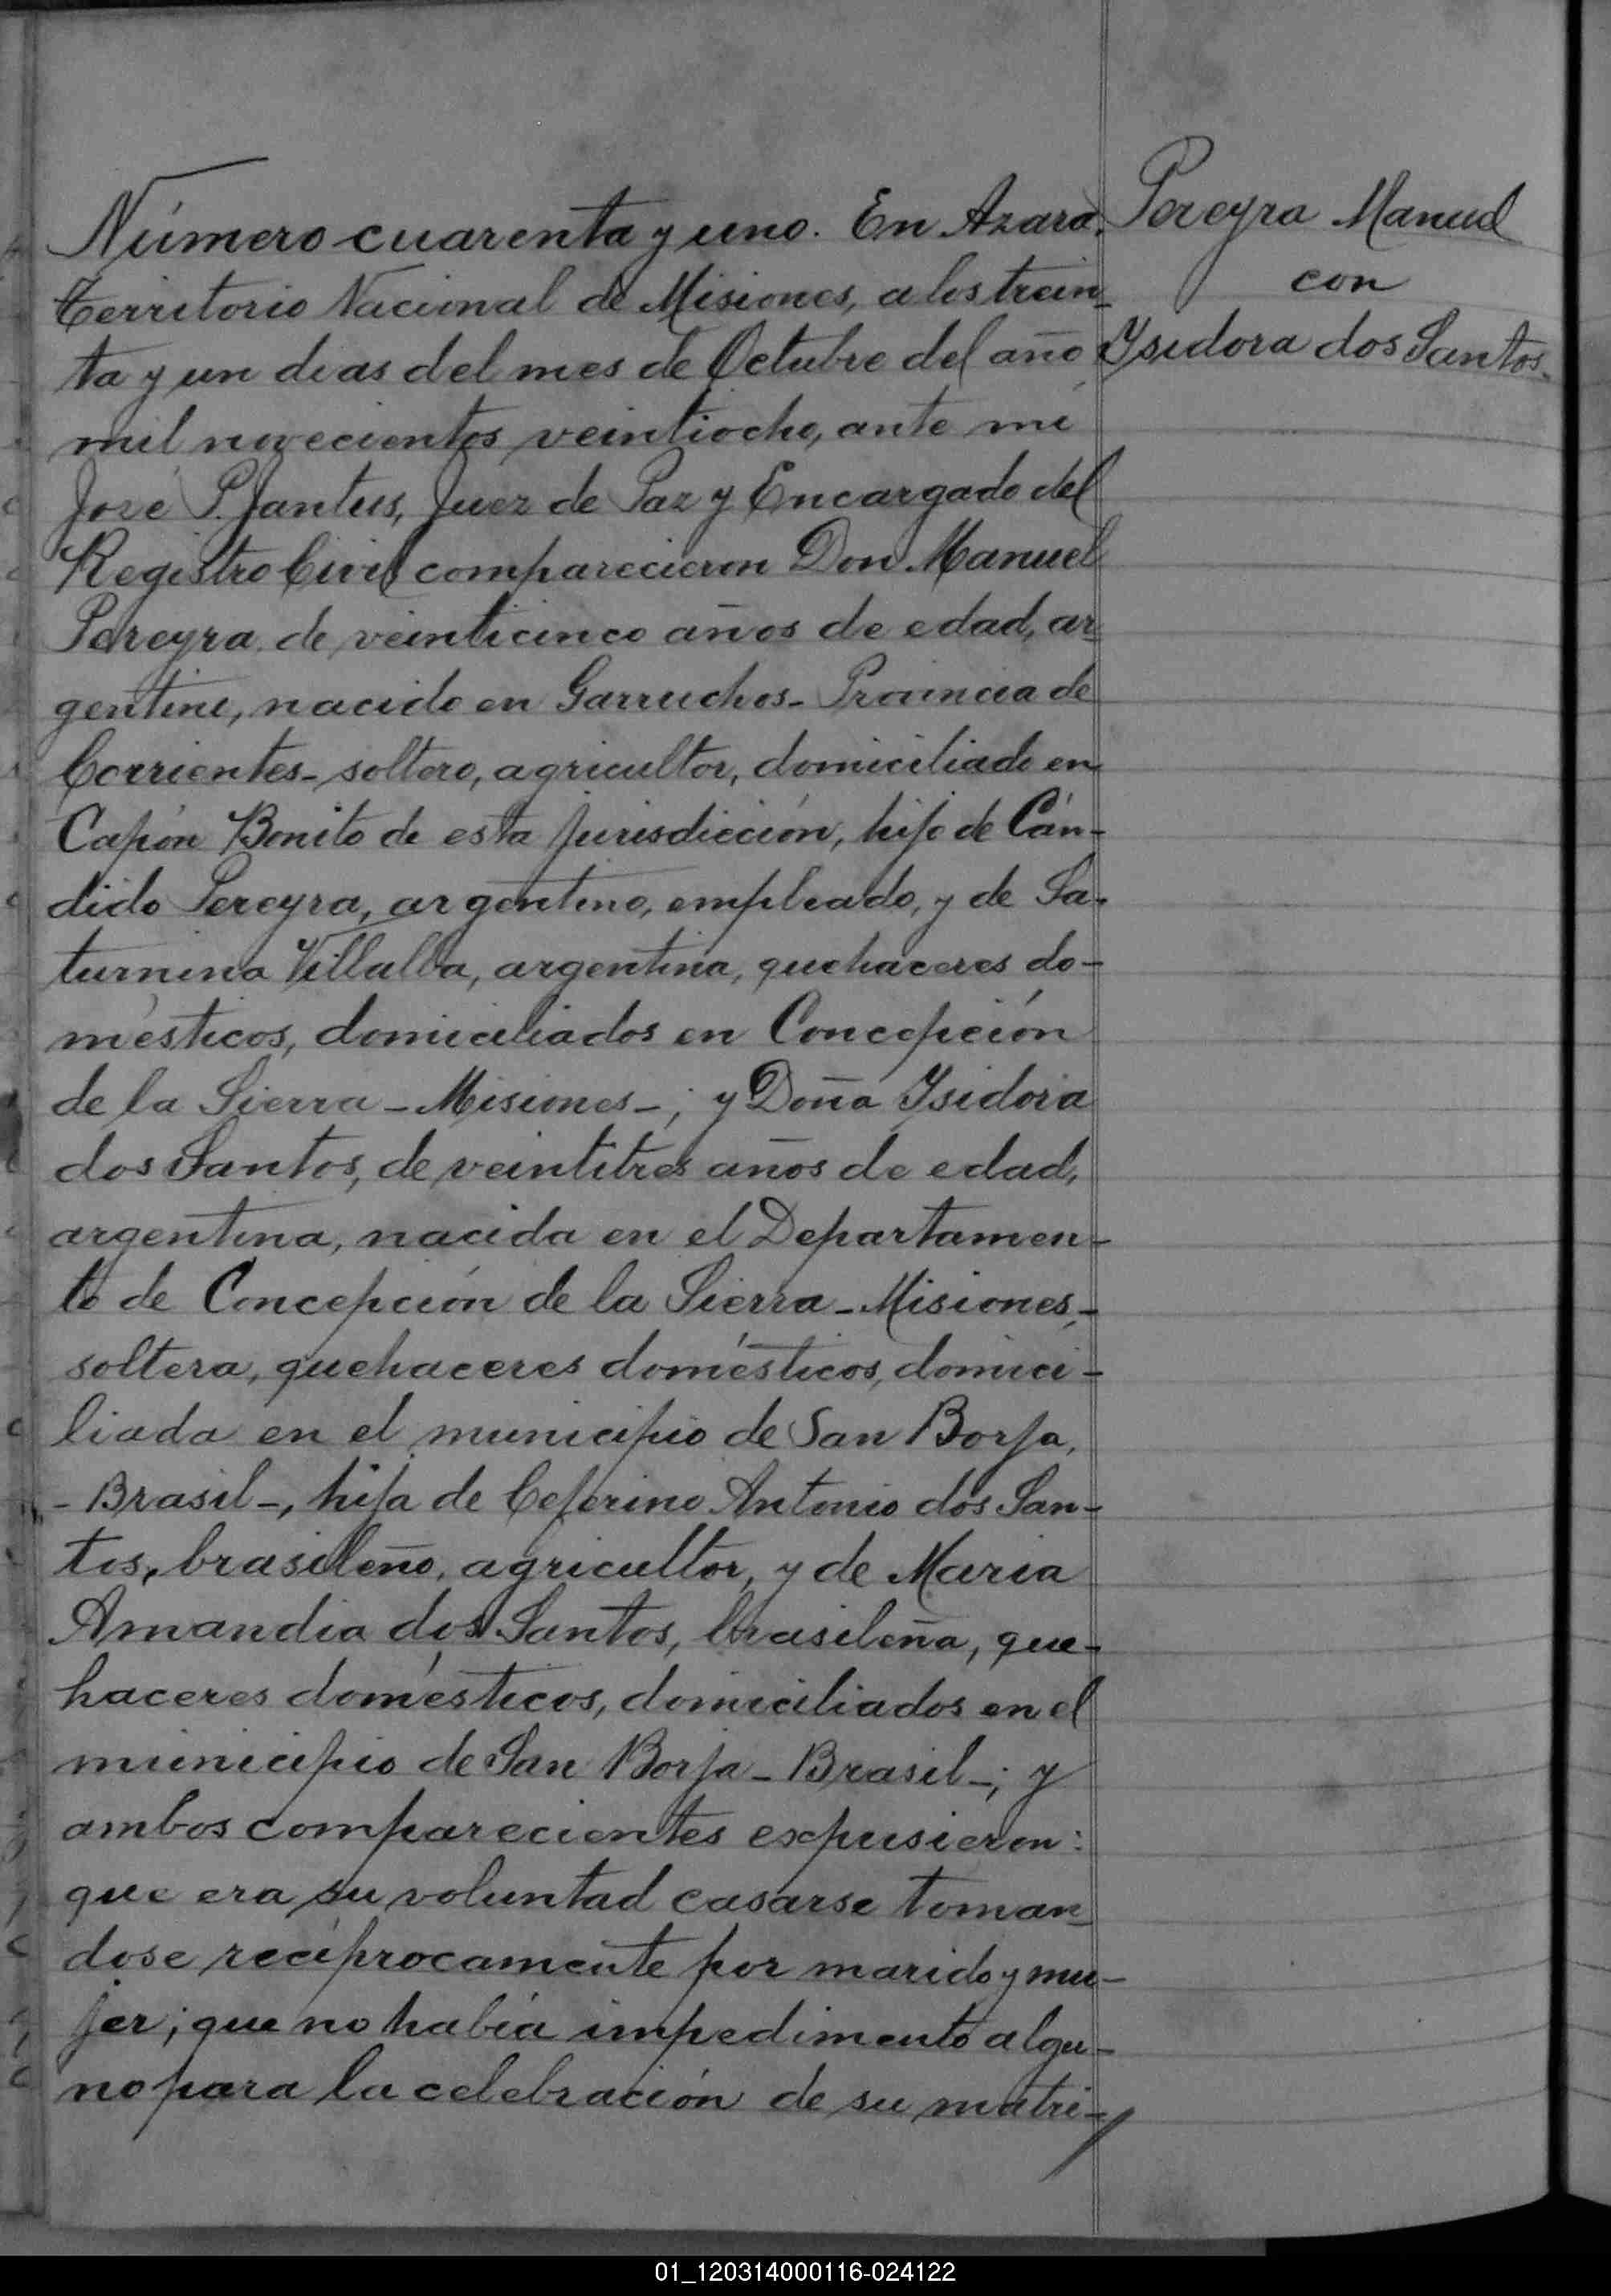 Número cuarenta y uno. En Azara,
Territorio Nacional de Misiones, a los trein-
ta y un dias del mes de Octubre del año
mil novecientos veintiocho, ante mi
José P. Juez de Paz y Encargado del
Registro Civil comparecieron Don Manuel
Pereyra, de veinticinco años de edad, ar-
gentino, nacido en Garruchos - Provincia de
Corrientes - soltero, agricultor, domiciliado en
Capón Bonito de esta jurisdicción, hijo de Cán-
dido Pereyra, argentino, empleado, y de Sa-
turnina Villalba, argentina, quehaceres do-
mésticos, domiciliados en Concepción
de la Sierra - Misiones -; y Doña Ysidora
dos Santos, de veintitres años de edad,
argentina, nacida en el Departamen-
to de Concepción de la Sierra - Misiones, -
soltera, quehaceres domésticos, domici-
liada en el municipio de San Borja,
- Brasil -, hija de Ceferino Antonio dos San-
tos, brasileño, agricultor, y de Maria
Amandia dos Santos, brasileña, que-
haceres domésticos, domiciliados en el
municipio de San Borja - Brasil -; y
ambos comparecientes expusieron:
que era su voluntad casarse toman-
dose recíprocamente por marido y mu-
jer; que no había impedimento algu-
no para la celebración de su matri-
Pereyra Manuel
con
Ysidora dos Santos.
01_120314000116-024122